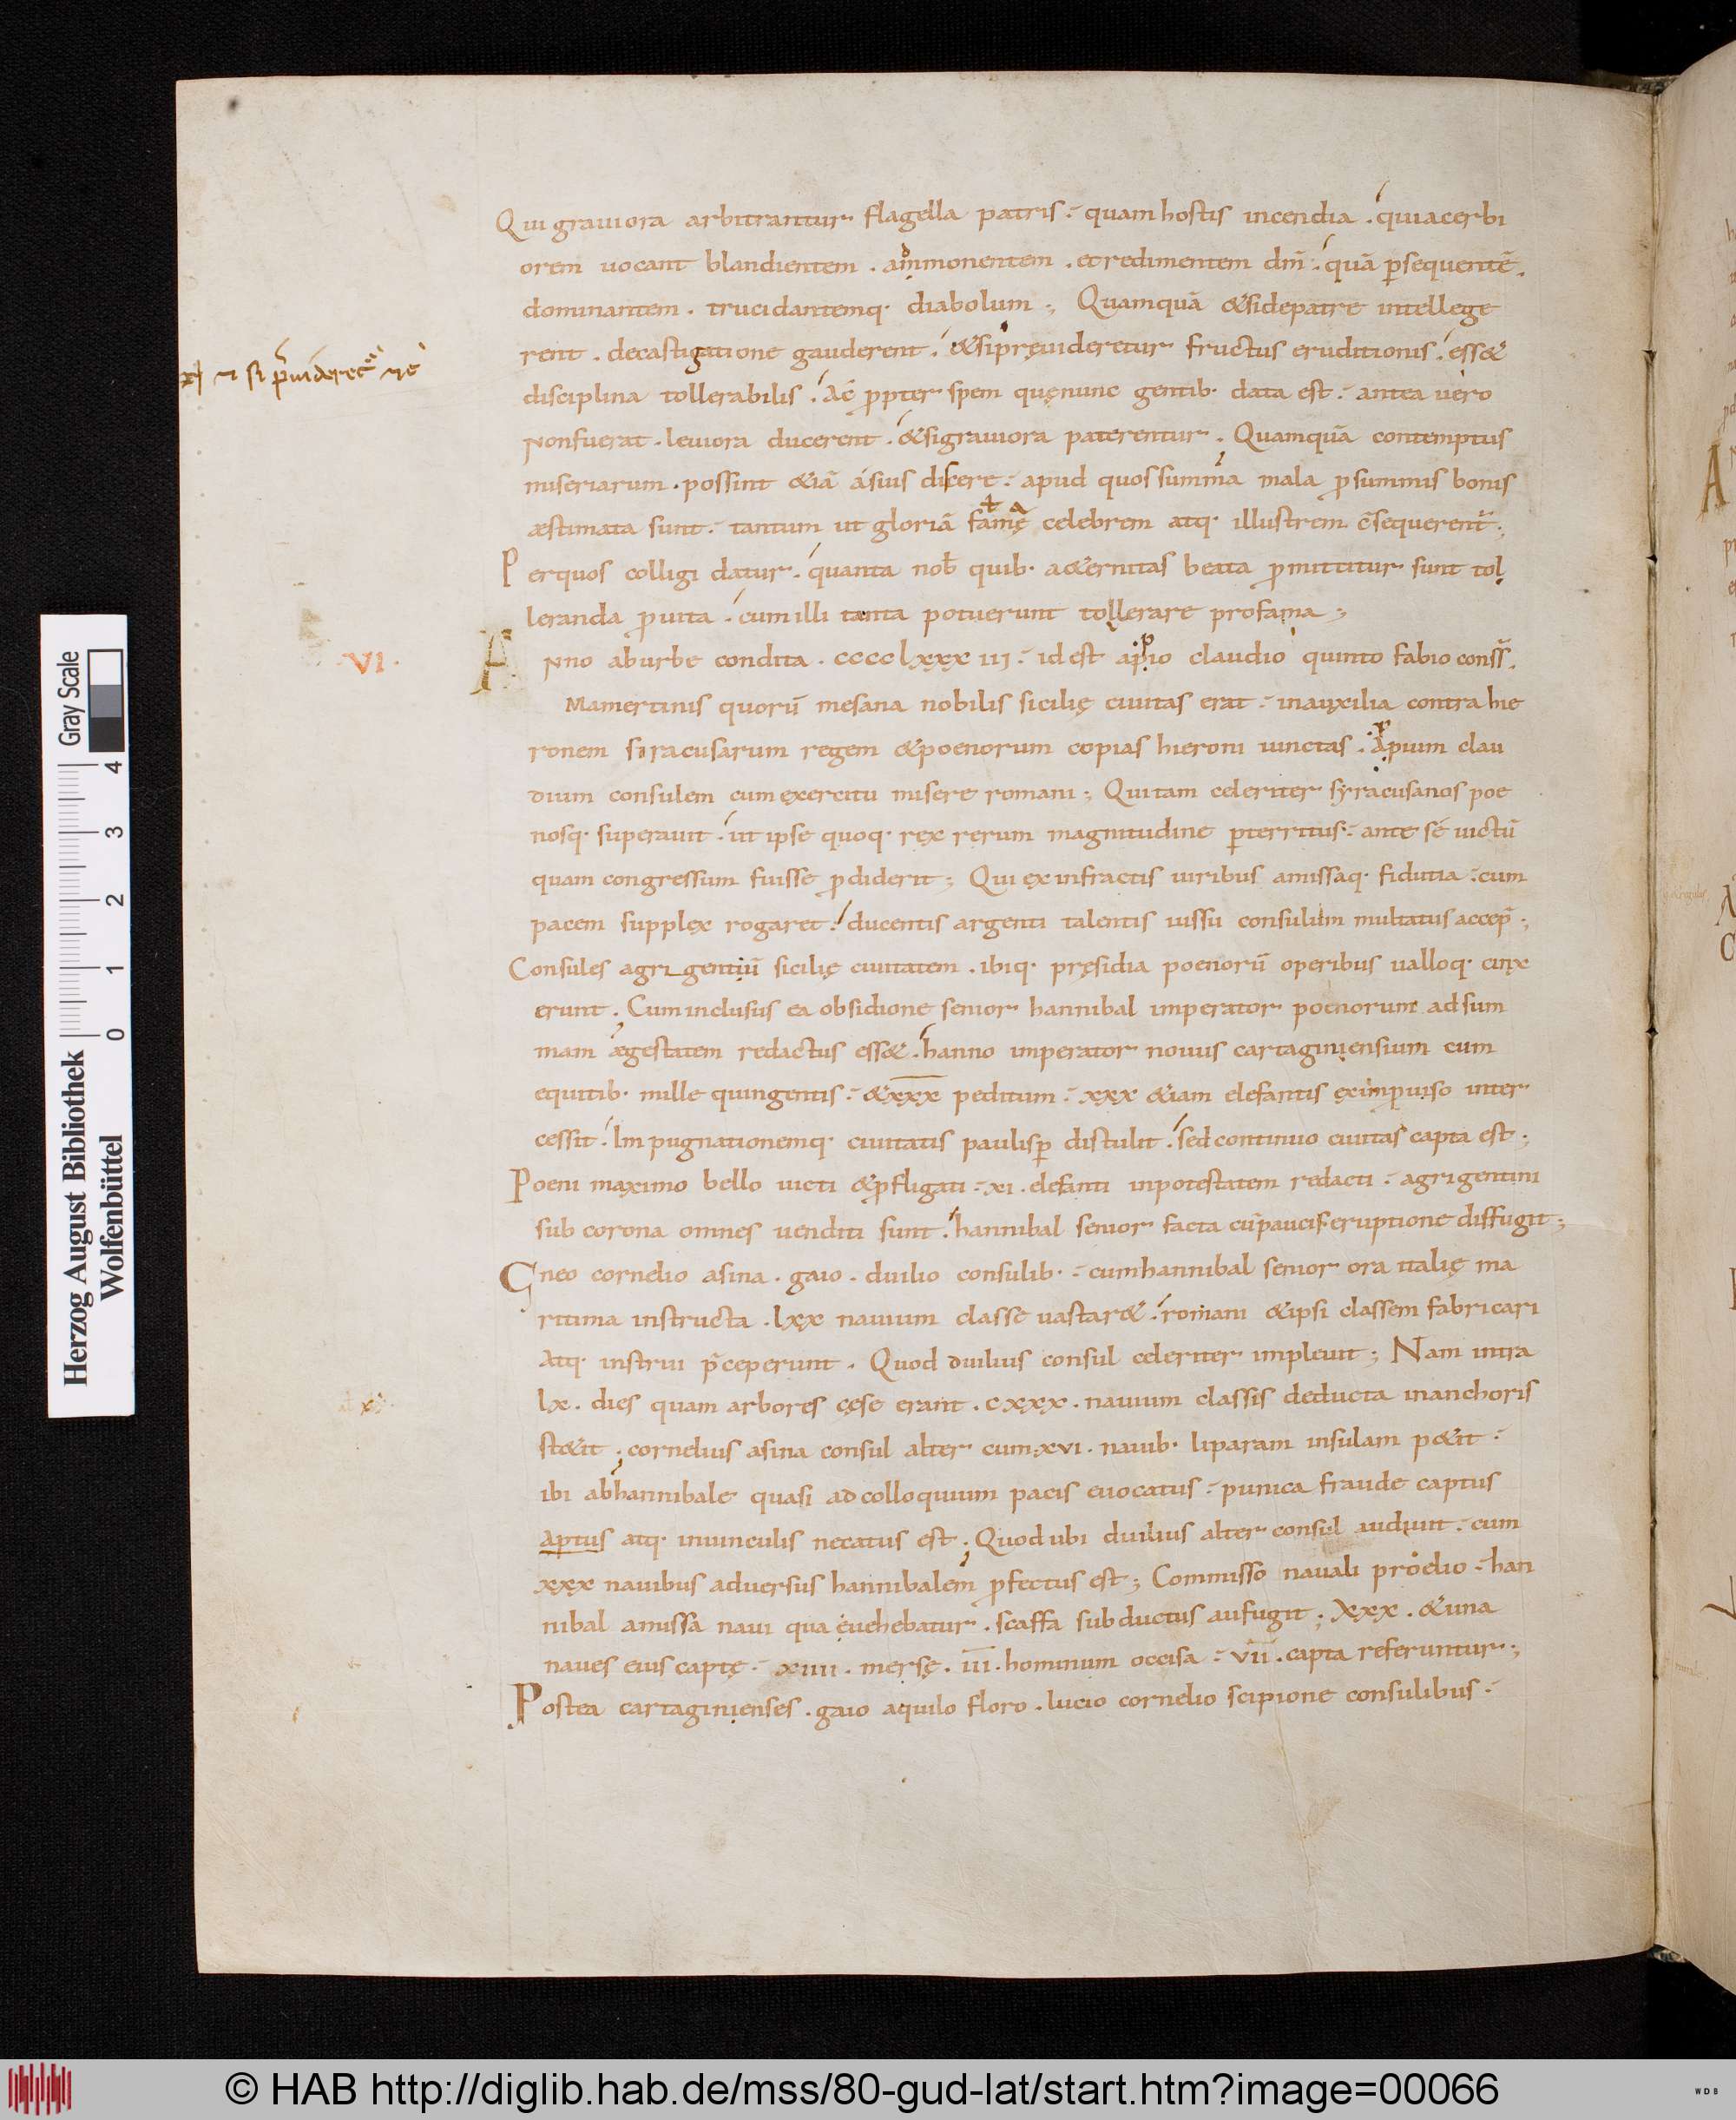 Qui grauiora arbitrantur flagella patris quam hostis incendia . quia cerbi
orem uocant blandientem . ammonentem . et redimentem dm̄ . quā ꝑsequentē .
dominantem . trucidantemq· diabolum ; Quamquā & si de patre intellege
rent . de castigatione gauderent . & si pręuideretur fructus eruditionis . ess&
n si p̄uideret̄
disciplina tollerabilis . Ac ꝓpter spem quę nunc gentib· data est . antea uero
Non fuerat . leuiora ducerent . & si grauiora paterentur . Quamquā contemptus
miseriarum . possint &iā á suis discere . apud quos summa mala ꝓ summis bonis
æstimata sunt . tantum ut gloriā famę celebrem atq· illustrem c̄sequerent̄ ;
Per quos colligi datur . quanta nob̄ quib· a&ernitas beata ꝓmittitur sunt tol
leranda ꝓ uita . cum illi tanta potuerunt tollerare pro fama ;
·VI·
ANno ab urbe condita . cccclxxxiii . id est apio claudio quinto fabio conss̄ .
Mamertinis quorū mesana nobilis sicilię ciuitas erat . in auxilia contra hie
ronem siracusarum regem & poenorum copias hieroni iunctas . Apium clau
dium consulem cum exercitu misere romani ; Qui tam celeriter syracusanos poe
nosq· superauit . ut ipse quoq· rex rerum magnitudine ꝑterritus . ante sé uictū
quam congressum fuisse ꝓdiderit ; Qui ex infractis uiribus amissaq· fidutia . cum
pacem supplex rogaret . ducentis argenti talentis iussu consulum multatus accep̄ ;
Consules agrigentiū sicilię ciuitatem . ibiq· pręsidia poenorū operibus ualloq· cinx
erunt . Cum inclusus ea obsidione senior hannibal imperator poenorum ad sum
mam ægestatem redactus ess& . hanno imperator nouus cartaginiensium cum
equitib· mille quingentis . & x̄x̄x̄ peditum . xxx &iam elefantis ex inꝓuiso inter
cessit . Impugnationemq· ciuitatis paulisꝑ distulit . sed continuo ciuitas capta est ;
Poeni maximo bello uicti & ꝓfligati . xi . elefanti in potestatem redacti . agrigentini
sub corona omnes uenditi sunt . hannibal senior facta cū paucis eruptione diffugit ;
Gneo cornelio asina . gaio . duilio consulib· . cum hannibal senior ora italię ma
ritima instructa . lxx nauium classe uastar& . romani & ipsi classem fabricari
Atq· instrui p̄ceperunt . Quod duilius consul celeriter impleuit ; Nam intra
lx . dies quam arbores cęse erant . cxxx . nauium classis deducta in anchoris
st&it ; cornelius asina consul alter cum xvi . nauib· liparam insulam p&iit
ibi ab hannibale quasi ad colloquium pacis euocatus . punica fraude captus
aptus atq· in uinculis necatus est ; Quod ubi duilius alter consul audiuit . cum
xxx nauibus aduersus hannibalem ꝓfectus est ; Commisso nauali proelio . han
nibal amissa naui qua euehebatur . scaffa subductus aufugit ; Xxx . & una
naues eius captę . xiiii . mersę . īīī . hominum occisa . v̄īī . capta referuntur ;
Postea cartaginienses . gaio aquilo floro . lucio cornelio scipione consulibus
Herzog August Bibliothek
Wolfenbüttel
0 1 2 3 4
Gray Scale
© HAB http://diglib.hab.de/mss/80-gud-lat/start.htm?image=00066
WDB